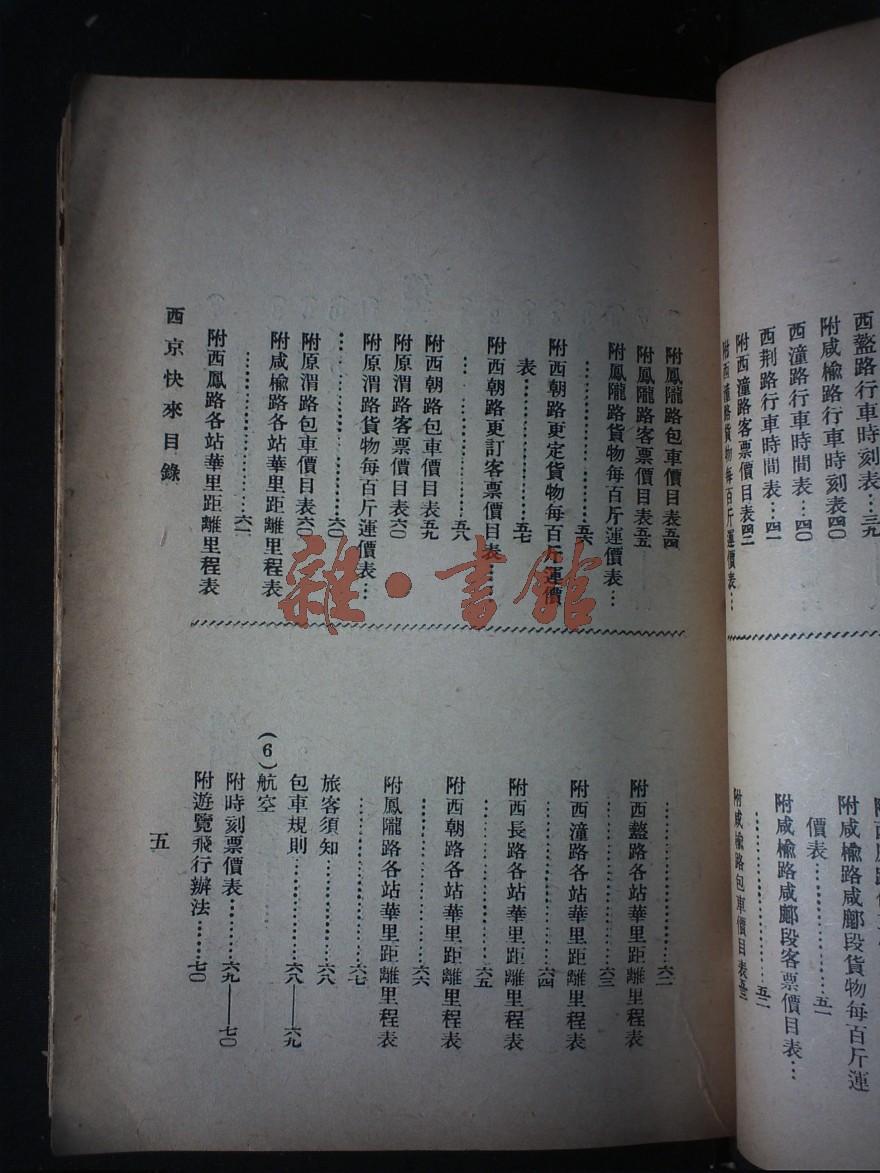 西盩路行車時刻表…三九
附咸楡路行車時刻表四〇
西潼路行車時間表…四〇
西荆路行車時間表…四一
附西潼路客票價目表四二
附西潼路貨物每百斤運價表…
附咸楡路咸鄜段貨物每百斤運
價表……………五一
附咸楡路咸鄜段客票價目表…
……………五二
附咸楡路包車價目表五三
附鳳隴路包車價目表五四
附鳳隴路客票價目表五五
附鳳隴路貨物每百斤運價表…
……………五六
附西朝路更定貨物每百斤運價
表……………五七
附西朝路更訂客票價目表……
……………五八
附西朝路包車價目表五九
附原渭路客票價目表六〇
附原渭路貨物每百斤運價表…
……………六〇
附原渭路包車價目表六〇
附咸楡路各站華里距離里程表
……………六一
附西鳳路各站華里距離里程表
……………六二
附西盩路各站華里距離里程表
……………六三
附西潼路各站華里距離里程表
……………六四
附西長路各站華里距離里程表
……………六五
附西朝路各站華里距離里程表
……………六六
附鳳隴路各站華里距離里程表
……………六七
旅客須知……………六八
包車規則……………六八—六九
(6)航空
附時刻票價表………六九—七〇
附遊覽飛行辦法………七〇
西京快來目錄
五
雜·書館